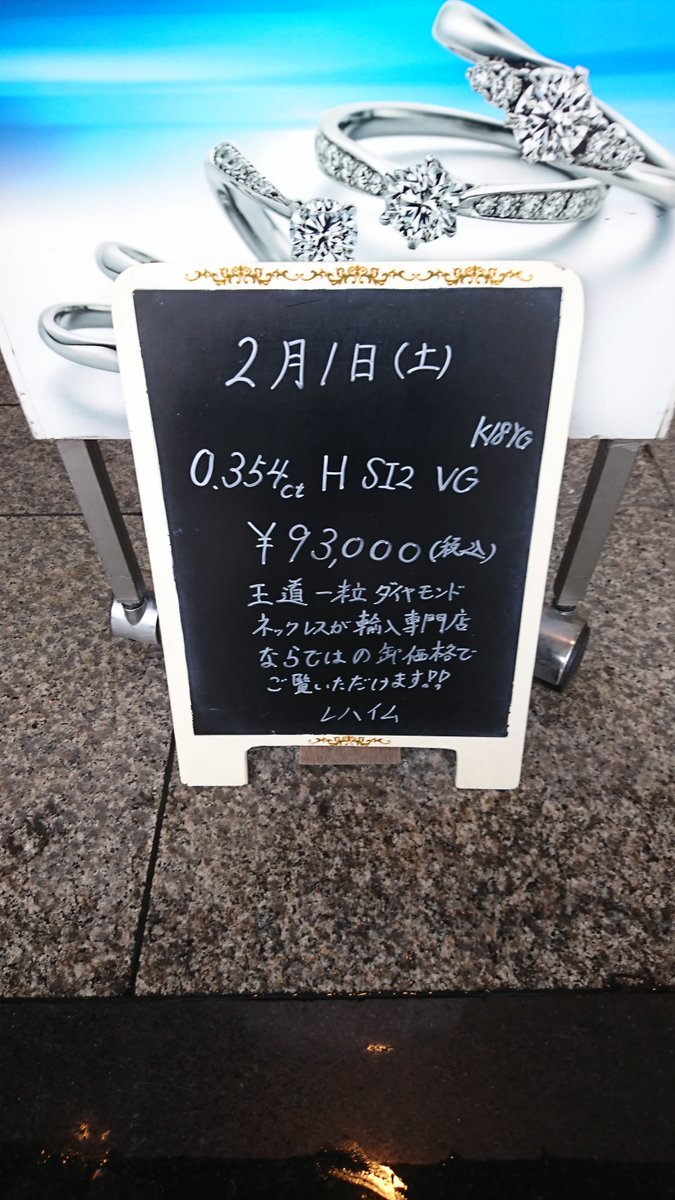 2月1日(土)
K18YG
0.354ct H SI2 VG
¥93,000(税込)
王道一粒ダイヤモンド
ネックレスが輸入専門店
ならではの卸価格で
ご覧いただけます!!
レハイム